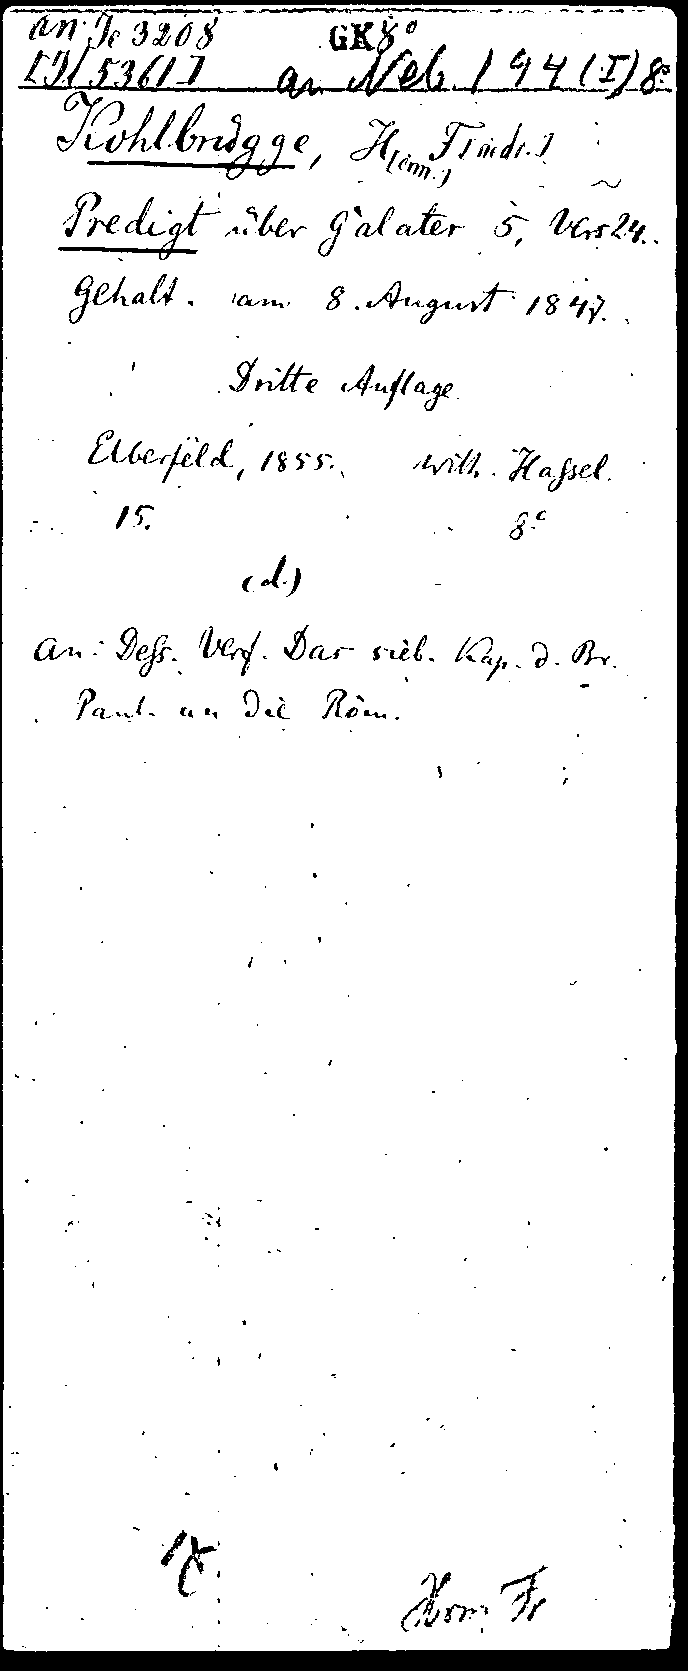 an: Je 3208 GK8°
[Jl 5361] an Neb 194 (I) 8°
Kohlbrügge, H[erm.] F[riedr.]
Predigt über Galater 5, Vers 24.
Gehalt. am 8. August 1847.
Dritte Auflage
Elberfeld, 1855. Wilh. Hassel.
15. 8°
(d.)
an: Dess. Verf. Das sieb. Kap. d. Br.
Paul. an die Röm.
Herm. Fr